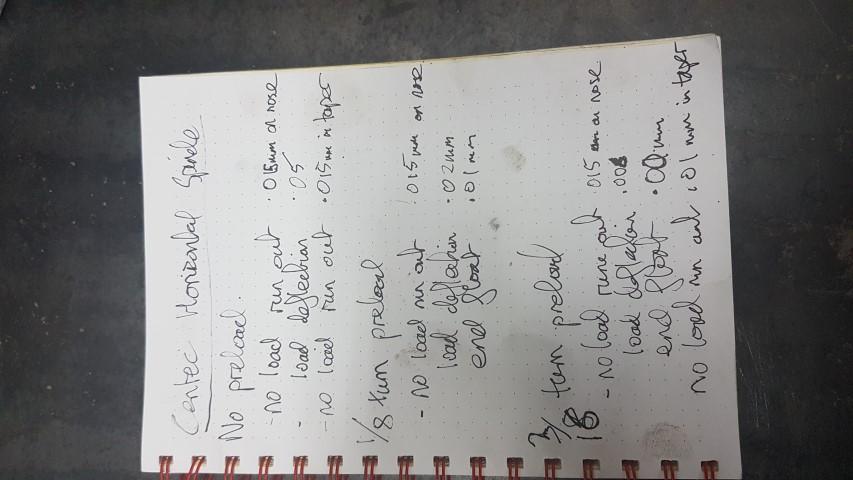 Centec Horizontal Spindle
No preload.
- no load run out .015mm on nose
- load deflection .05
- no load run out .015mm in taper
1/8 turn preload
- no load run out .015mm on nose
load deflection .02mm
end float .01mm
3/18 turn preload
- no load rune out .015 on nose
load deflection
end float mm
no load run out .01 mm in taper